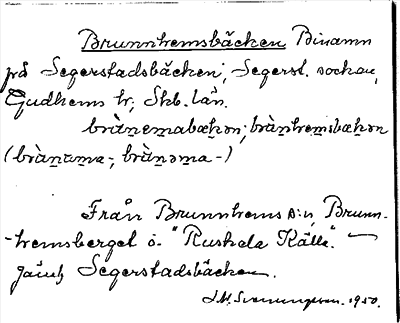 Brunnhemsbäcken Binamn
på Segerstadsbäcken, Segerst. socken,
Gudhems hr, Skb. län.
brùn̲emabækən; brùn̲hem̲sbækən
(brùn̲ama-; brùn̲əma-)
Från Brunnhems s:n, Brunn-
-hemsberget o. "Rushela Källa".
jämf. Segerstadsbäcken.
1950.